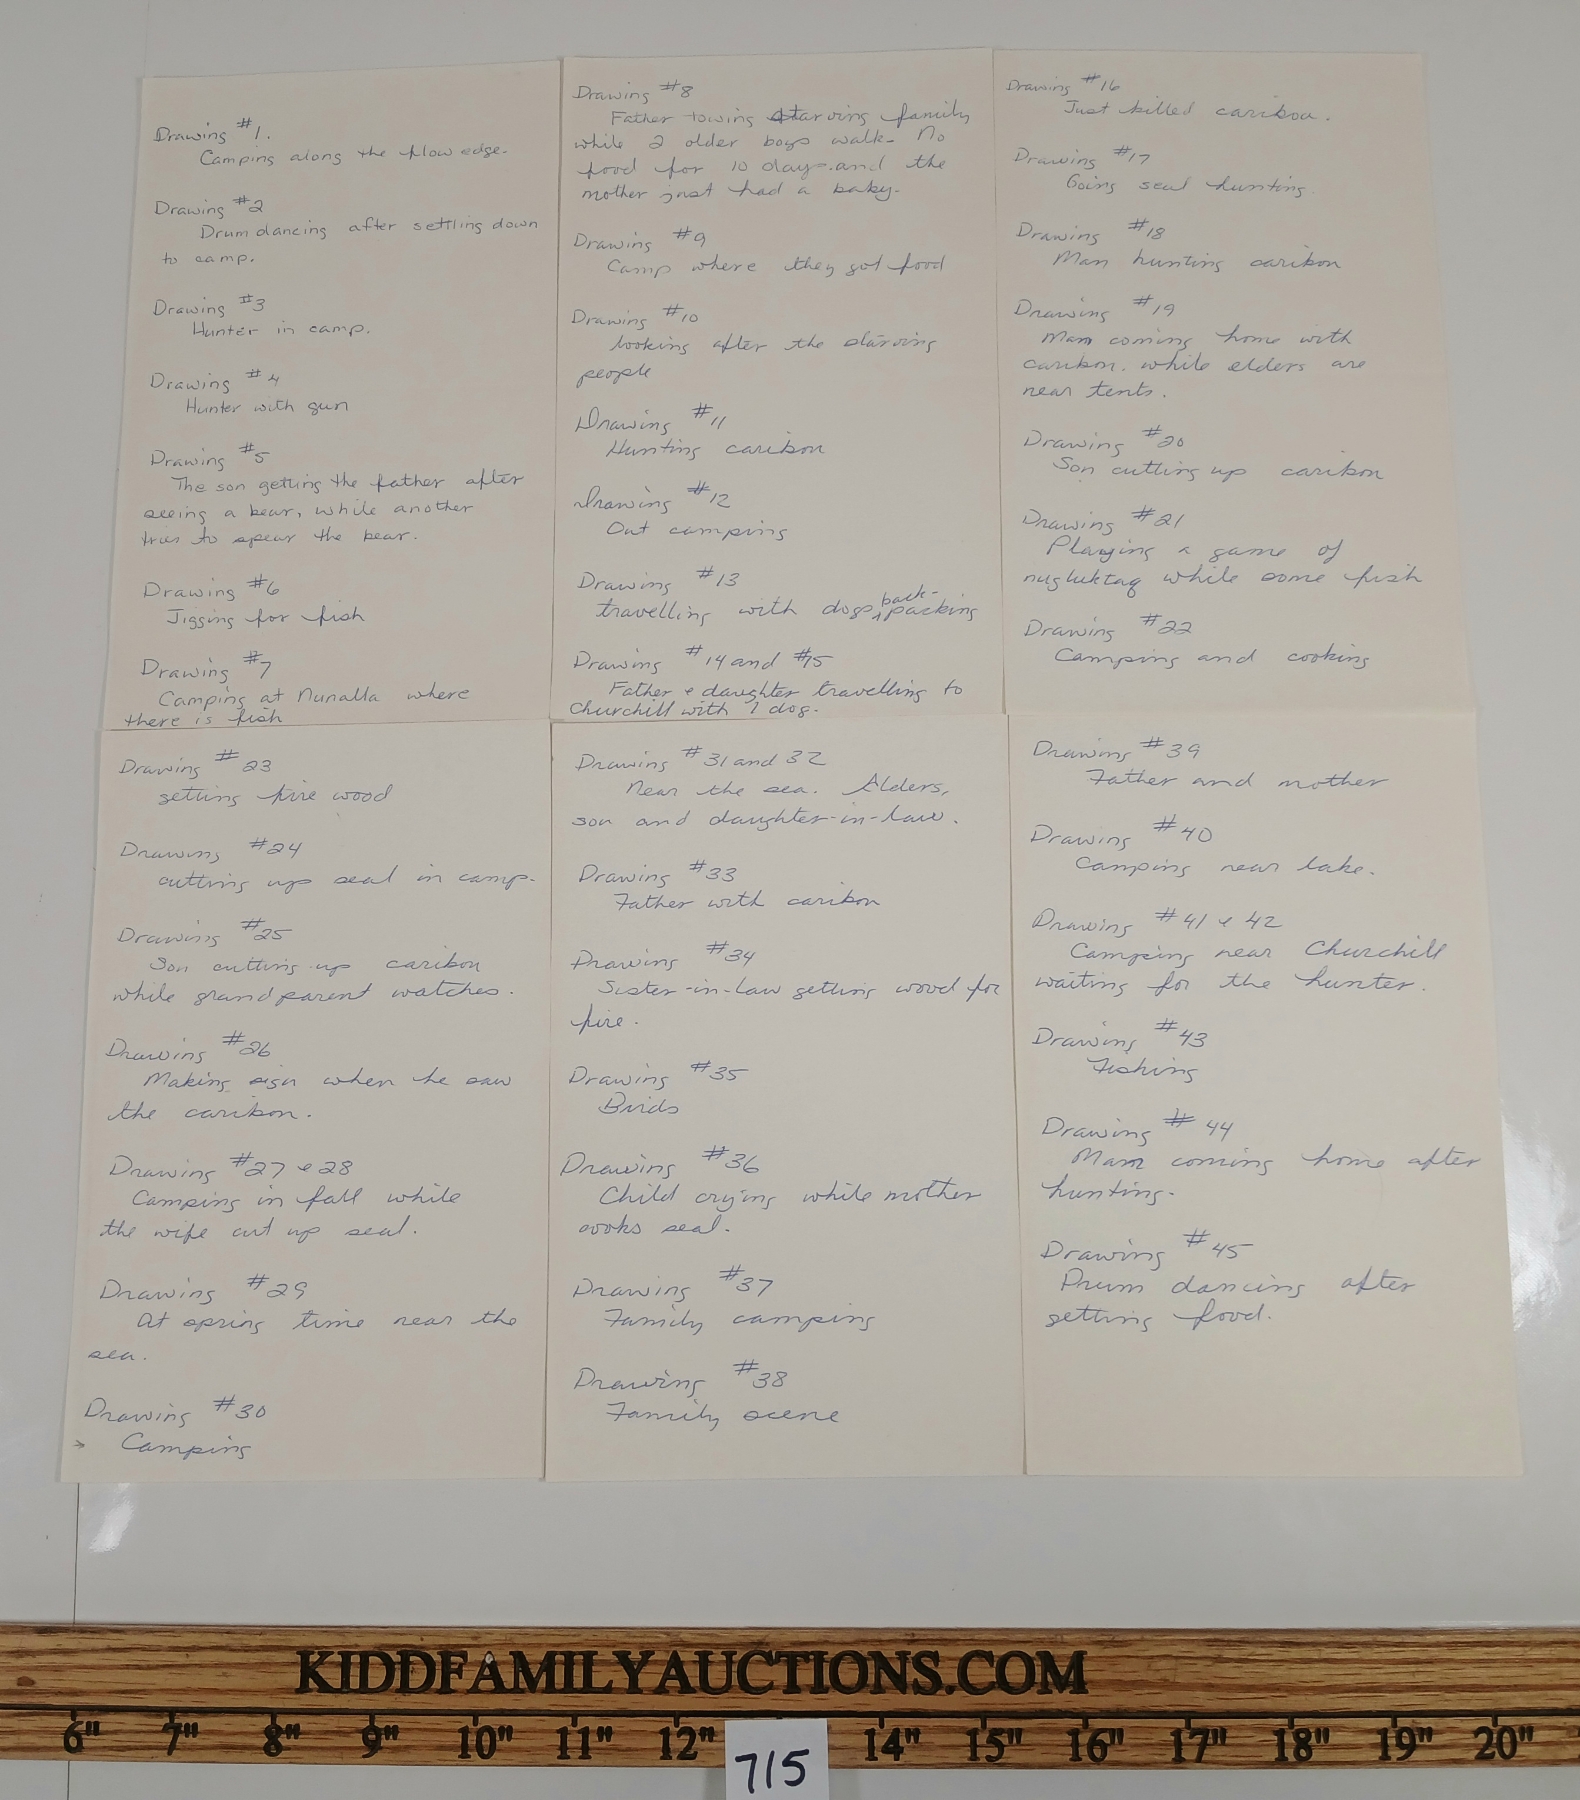 Drawing #1.
Camping along the flow edge.
Drawing #2
Drum dancing after settling down
to camp.
Drawing #3
Hunter in camp.
Drawing #4
Hunter with gun
Drawing #5
The son getting the father after
seeing a bear, while another
tries to spear the bear.
Drawing #6
Jigging for fish
Drawing #7
Camping at Nunalla where
there is fish
Drawing #8
Father towing starving family
while 2 older boys walk- No
food for 10 days and the
mother just had a baby.
Drawing #9
Camp where they got food
Drawing #10
looking after the starving
people
Drawing #11
Hunting caribou
Drawing #12
Out camping
Drawing #13
travelling with dogs back-packing
Drawing #14 and #15
Father & daughter travelling to
Churchill with 1 dog.
Drawing #16
Just killed caribou.
Drawing #17
Going seal hunting.
Drawing #18
Man hunting caribou
Drawing #19
Man coming home with
caribou. while elders are
near tents.
Drawing #20
Son cutting up caribou
Drawing #21
Playing a game of
nugluktaq while some fish
Drawing #22
Camping and cooking
Drawing #23
getting fire wood
Drawing #24
cutting up seal in camp.
Drawing #25
Son cutting up caribou
while grandparent watches.
Drawing #26
Making sign when he saw
the caribou.
Drawing #27 & 28
Camping in fall while
the wife cut up seal.
Drawing #29
At spring time near the
sea.
Drawing #30
Camping
Drawing #31 and 32
Near the sea. Elders,
son and daughter-in-law.
Drawing #33
Father with caribou
Drawing #34
Sister-in-law getting wood for
fire.
Drawing #35
Birds
Drawing #36
Child crying while mother
cooks seal.
Drawing #37
Family camping
Drawing #38
Family scene
Drawing #39
Father and mother
Drawing #40
Camping near lake.
Drawing #41 & 42
Camping near Churchill
waiting for the hunter.
Drawing #43
Fishing
Drawing #44
Man coming home after
hunting.
Drawing #45
Drum dancing after
getting food.
KIDDFAMILYAUCTIONS.COM
6" 7" 8" 9" 10" 11" 12" 14" 15" 16" 17" 18" 19" 20"
715